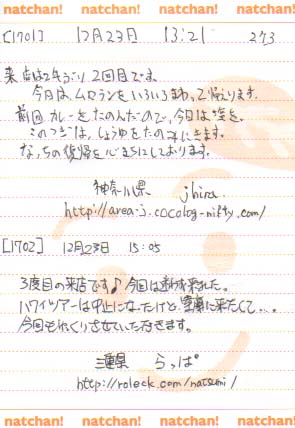 natchan! natchan! natchan! natchan!
[1701] 12月23日 13:21 273
来店は2年ぶり2回目です。
今日は、ムロランをいろいろまわって帰ります。
前回カレーをたのんだので、今日は塩を。
このつぎは、しょうゆをたのみにきます。
なっちの復帰を心まちにしております。
神奈川県 jhira
http://area-j.cocolog-nifty.com/
[1702] 12月23日 15:05
3度目の来店です♪ 今回は迷わず来れた。
ハワイツアーは中止になったけど室蘭に来たくて...
今回もゆっくりさせていただきます。
三重県 らっぱ
http://roleck.com/natsumi/
natchan! natchan! natchan! natchan!